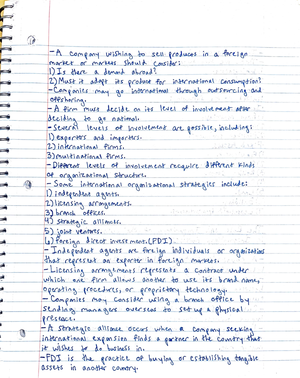 - A company wishing to sell produces in a foreign
market or markets should consider:
1) Is there a demand abroad?
2) Must it adapt its produce for international consumption?
- Companies may go international through outsourcing and
offshoring.
- A firm must decide on its level of involvement after
deciding to go national.
- Several levels of involvement are possible, including:
1) exporters and importers.
2) international firms.
3) multinational firms.
- Different levels of involvement require different kinds
of organizational structure.
- Some international organizational strategies include:
1) independent agents.
2) licensing arrangements.
3) branch offices.
4) strategic alliances.
5) joint ventures.
6) foreign direct investment (FDI).
- Independent agents are foreign individuals or organizations
that represent an exporter in foreign markets.
- Licensing arrangements represents a contract under
which one firm allows another to use its brand name,
operating procedures, or proprietary technology.
- Companies may consider using a branch office by
sending managers overseas to set up a physical
presence.
- A strategic alliance occurs when a company seeking
international expansion finds a partner in the country that
it wishes to do business in.
- FDI is the practice of buying or establishing tangible
assets in another country.